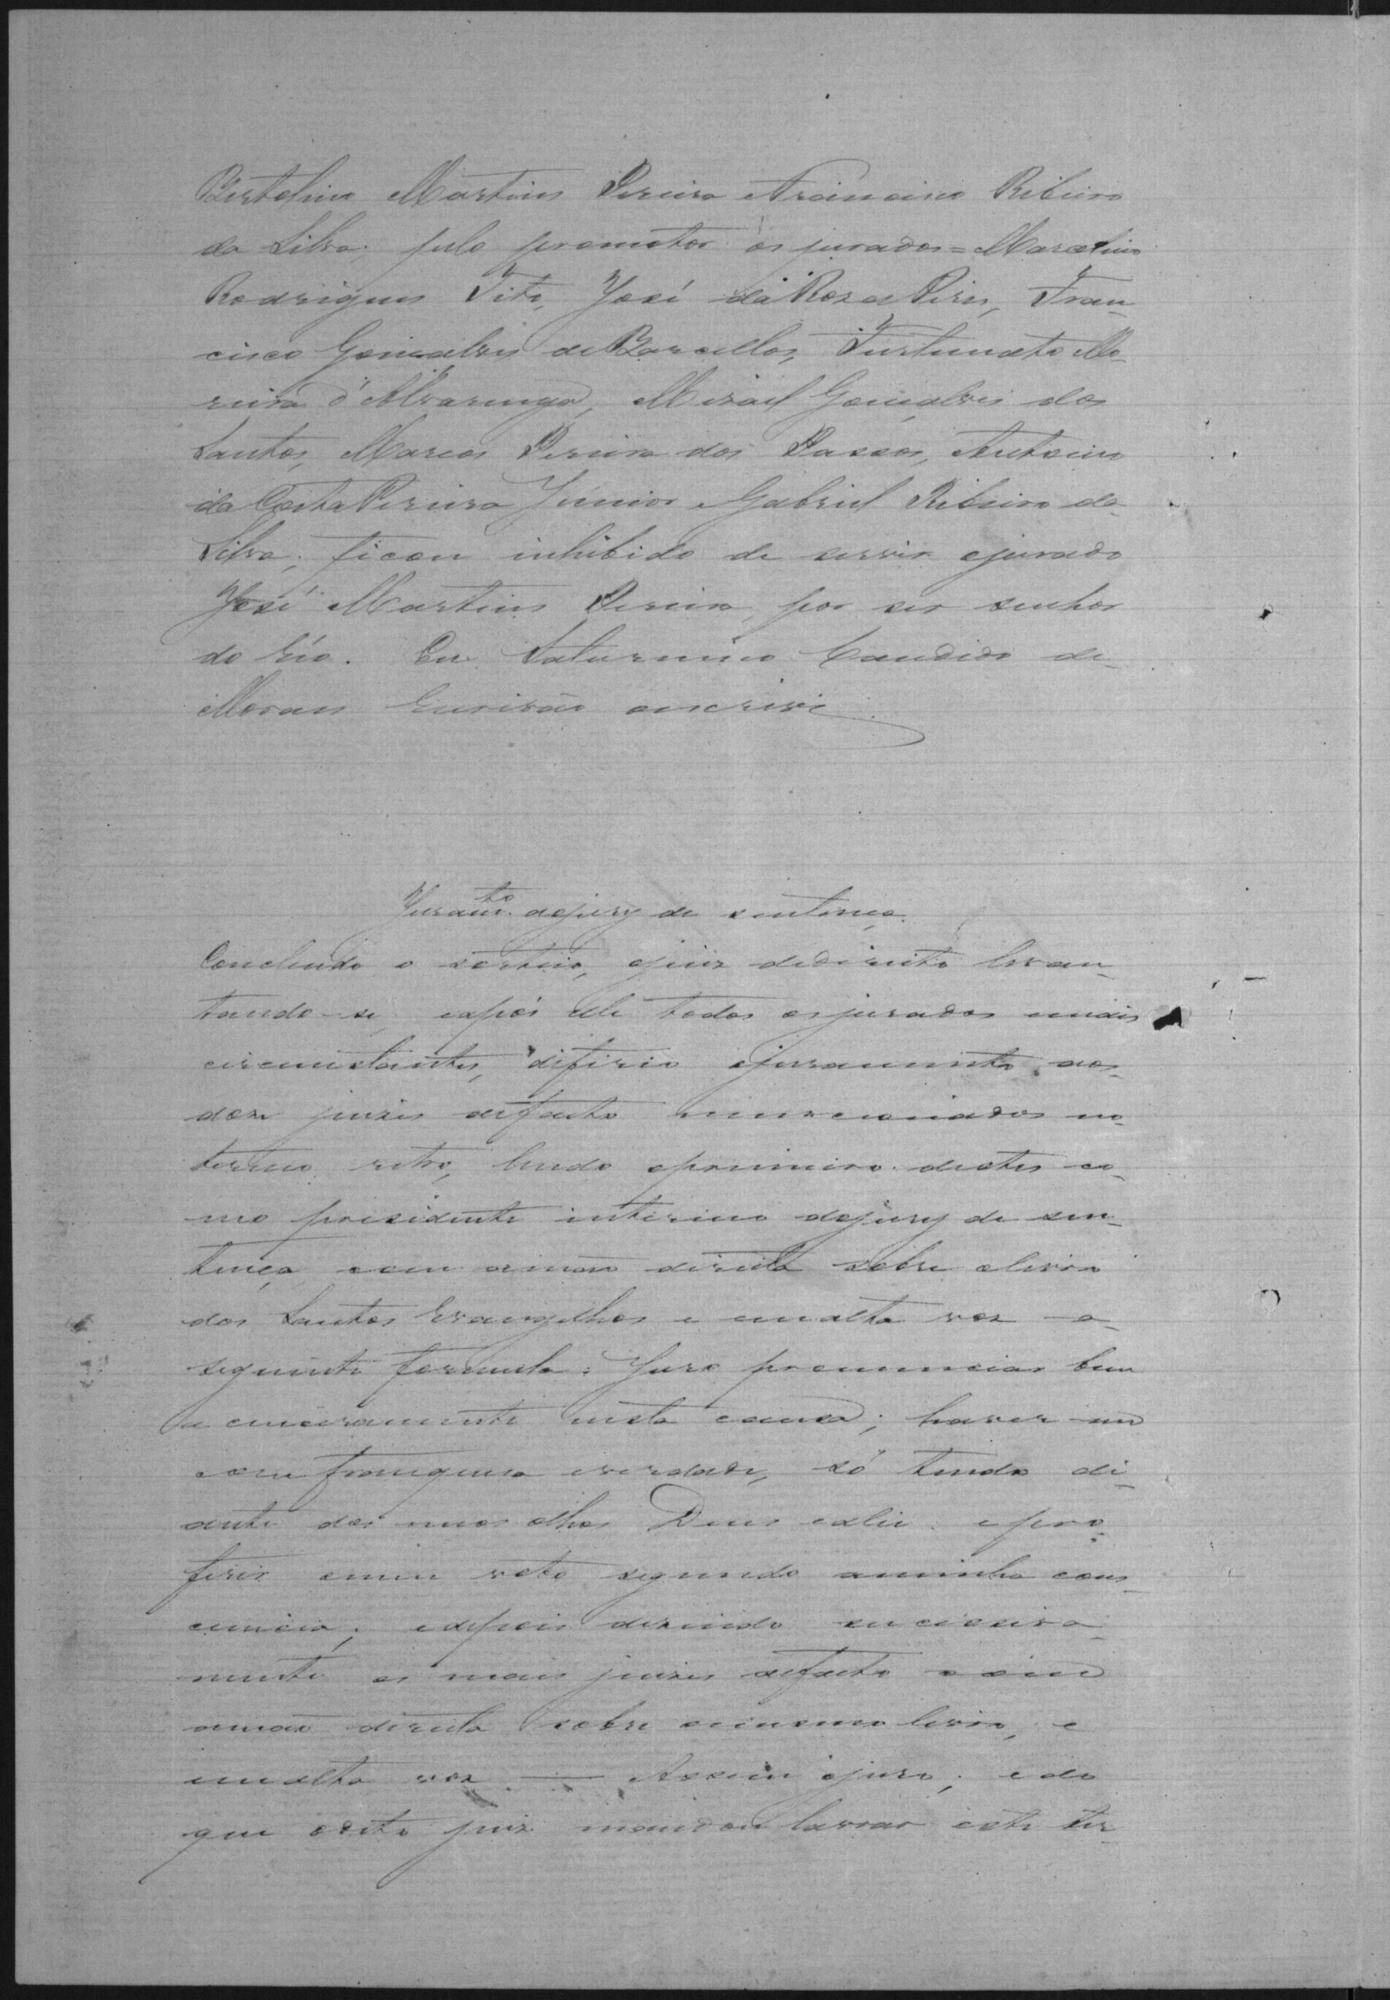 Bertolino Martins Pereira Ribeiro
da Silva; pelo promotor os jurados = Marcelino
Rodrigues Tito, José da Rosa Pires, Fran-
cisco Gonçalves de Barcellos, Furtunato Mo-
reira d'Alvarenga, Mizael Gonçalves dos
Santos, Marcos Pereira dos Passos, Antonio
da Costa Pereira Junior e Gabriel Ribeiro da
Silva; ficou inhibido de servir ojurado
José Martins Pereira, por ser senhor
do réo. Eu Saturnino Candido de
Moraes Escrivão escrivi
Juramto. aojury de sentença.
Concluido o sorteio, ojuiz dedireito levan-
tando-se eapós elle todos osjurados emais
circunstantes, difirio ojuramento aos
doze juizes defacto mencionados no
termo retro, lendo oprimeiro destes co-
mo presidente interino dojury de sen-
tença com amão direita sobre olivro
dos Santos Evangelhos e emalta voz a
seguinte formula: Juro pronunciar bem
e sinceramente nesta causa; haver-me
com franquesa everdade, só tendo di-
ante dos meus olhos Deus ealei; epro-
ferir omeu voto segundo aminha cons-
ciencia; edepois dizendo sucessiva-
mente os mais juizes defacto com
amão direita sobre omesmo livro, e
emalta voz — Assim ojuro; edo
que odito juiz mandou lavrar este ter-